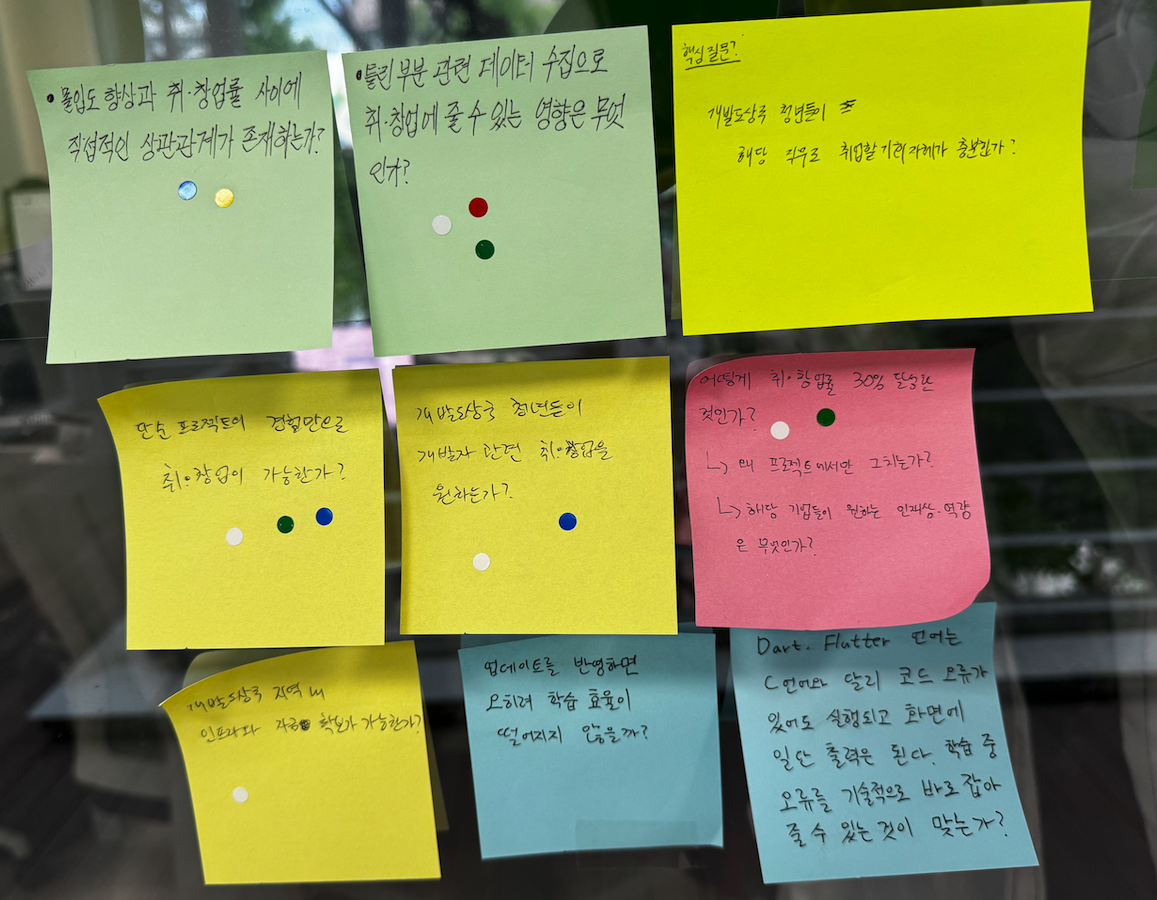 • 몰입도 향상과 취·창업률 사이에
직접적인 상관관계가 존재하는가?
• 틀린 부분 관련 데이터 수집으로
취·창업에 줄 수 있는 영향은 무엇
인가?
핵심 질문?
개발도상국 청년들이
해당 직무로 취업할 기회 자체가 충분한가?
단순 프로젝트의 경험만으로
취·창업이 가능한가?
개발도상국 청년들이
개발자 관련 취·창업을
원하는가?
어떻게 취·창업률 30% 달성한
것인가?
↳ 왜 프로젝트에서만 그치는가?
↳ 해당 기업들이 원하는 인재상·역량
은 무엇인가?
개발도상국 지역 내
인프라와 자금 확보가 가능한가?
업데이트를 반영하면
오히려 학습 효율이
떨어지지 않을까?
Dart. Flutter 언어는
C언어와 달리 코드 오류가
있어도 실행되고 화면에
일단 출력은 된다. 학습 중
오류를 기술적으로 바로 잡아
줄 수 있는 것이 맞는가?